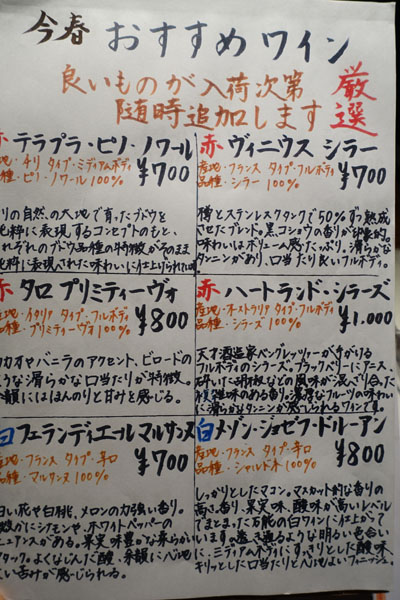 今春 おすすめワイン
良いものが入荷次第
随時追加します
厳選
赤 テラプラ・ピノ・ノワール
産地・チリ タイプ・ミディアムボディ
品種・ピノ・ノワール100%
¥700
チリの自然、の大地で育ったブドウを
純粋に表現するコンセプトのもと、
それぞれのブドウ品種の特徴がそのまま
純粋に表現された味わいに仕上げられ
赤 ヴィニウス シラー
産地・フランス タイプ・フルボディ
品種・シラー 100%
¥700
樽とステンレスタンクで50%ずつ熟成
させたブレンド。黒コショウの香りが印象的。
味わいはボリューム感たっぷり。滑らかな
タンニンがあり、口当たり良いフルボディ。
赤 タロ プリミティーヴォ
産地・イタリア タイプ・フルボディ
品種・プリミティーヴォ100%
¥800
カカオやバニラのアクセント、ビロードの
ような滑らかな口当たりが特徴。
余韻にはほんのりと甘みを感じる。
赤 ハートランド・シラーズ
産地・オーストラリア タイプ・フルボディ
品種・シラーズ 100%
¥1.000
天才酒造家ベン・グレッツァーが手がける
フルボディのシラーズ。ブラックベリーにアニス、
砕いた胡椒などの風味が混ざり合った
複雑味のある香り。濃厚なフルーツの味わい
に滑らかなタンニンが感じられるワインです。
白 フェランディエール マルサンヌ
産地・フランス タイプ・辛口
品種・マルサンヌ 100%
¥700
白い花や白桃、メロンの力強い香り。
微かにシナモンや、ホワイトペッパーの
ニュアンスがある。果実味豊かな柔らかい
アタック。よくなじんだ酸、余韻に心地
よい苦みが感じられる。
白 メゾン・ジョゼフ・ドルーアン
産地・フランス タイプ・辛口
品種・シャルドネ 100%
¥800
しっかりとしたマコン。マスカット的な香りの
高さ、香り、果実味、酸味が高いレベル
でまとまった万能の白ワインに仕上がって
います。透き通るような明るい色合い
に、ミディアムボディにすっきりとした酸味、
キリッとした口当たりと心地よいフィニッシュ。